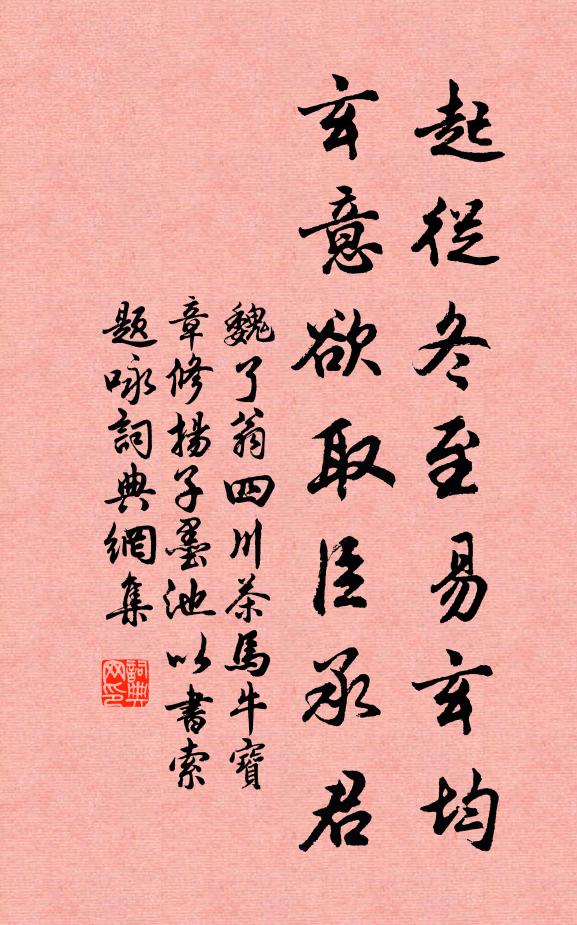 起從冬至易玄均
玄意欲取臣承君
魏了翁四川茶馬牛寶
章修揚子墨池以書索
題咏詞典網集
詞典
网印